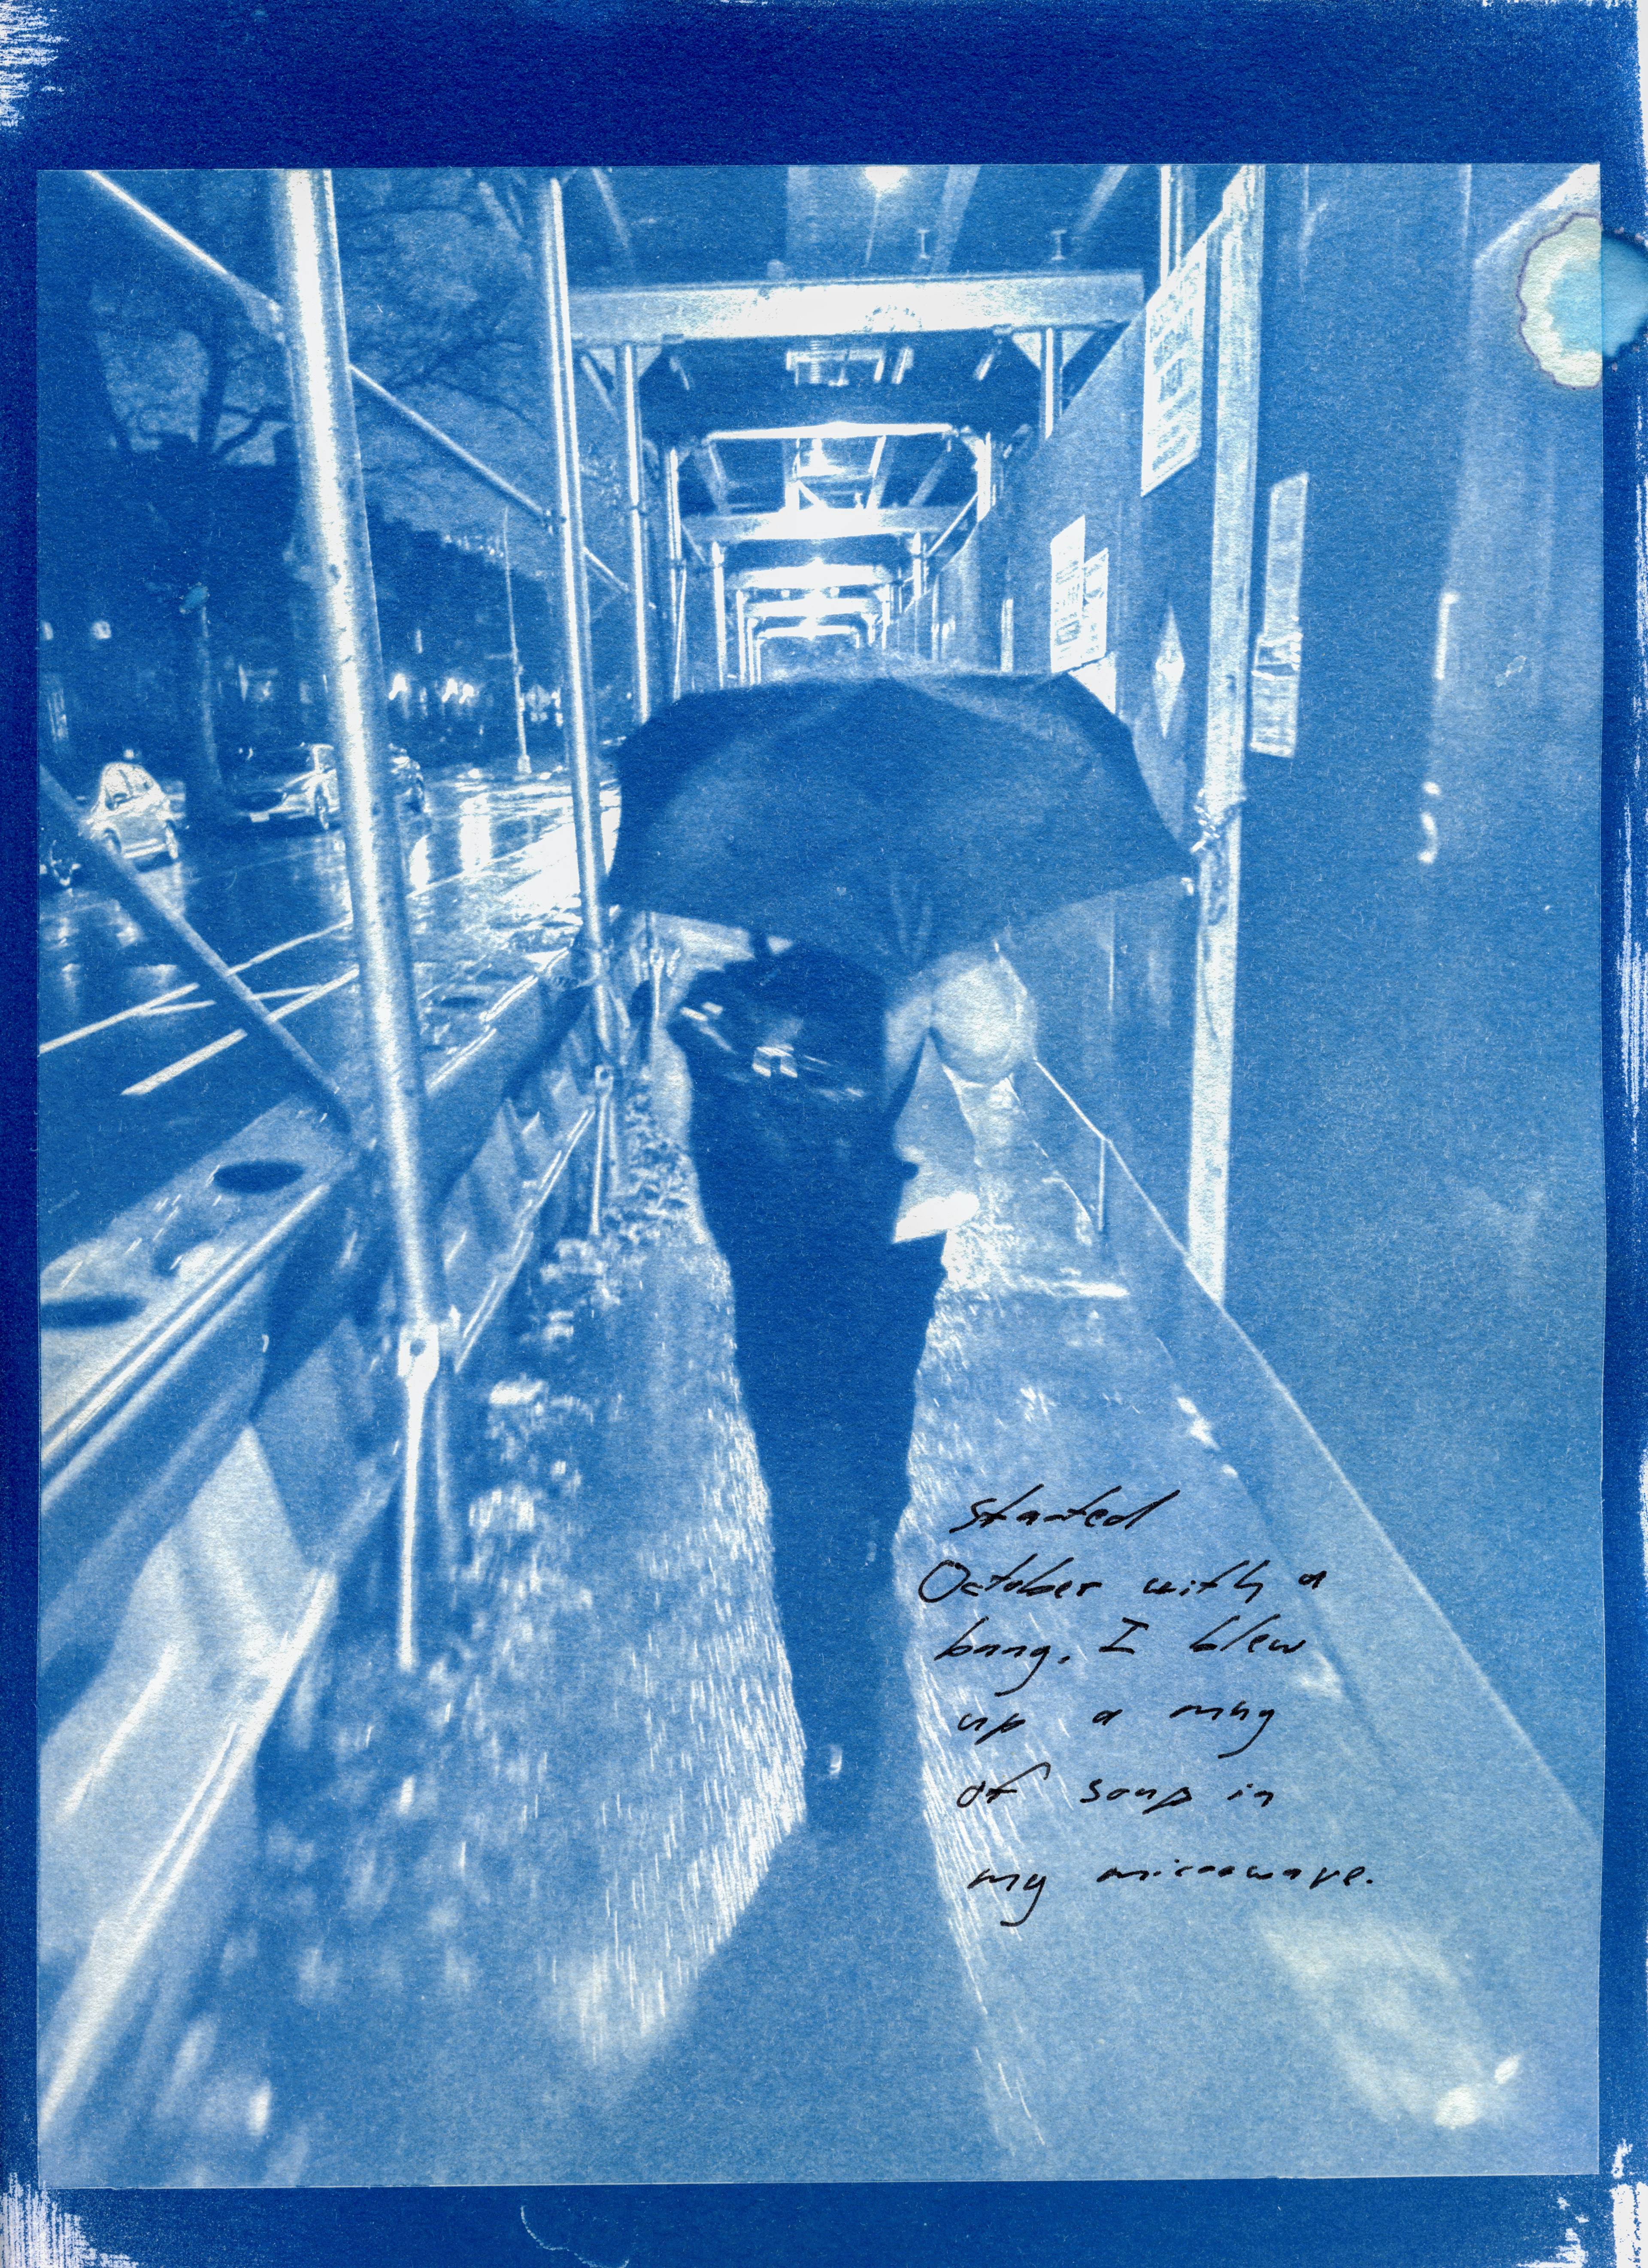 started
October with a
bang, I blew
up a mug
of soup in
my microwave.